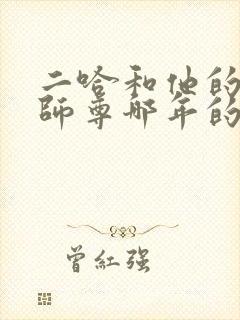 二哈和他的
师尊那年的
曾紅强